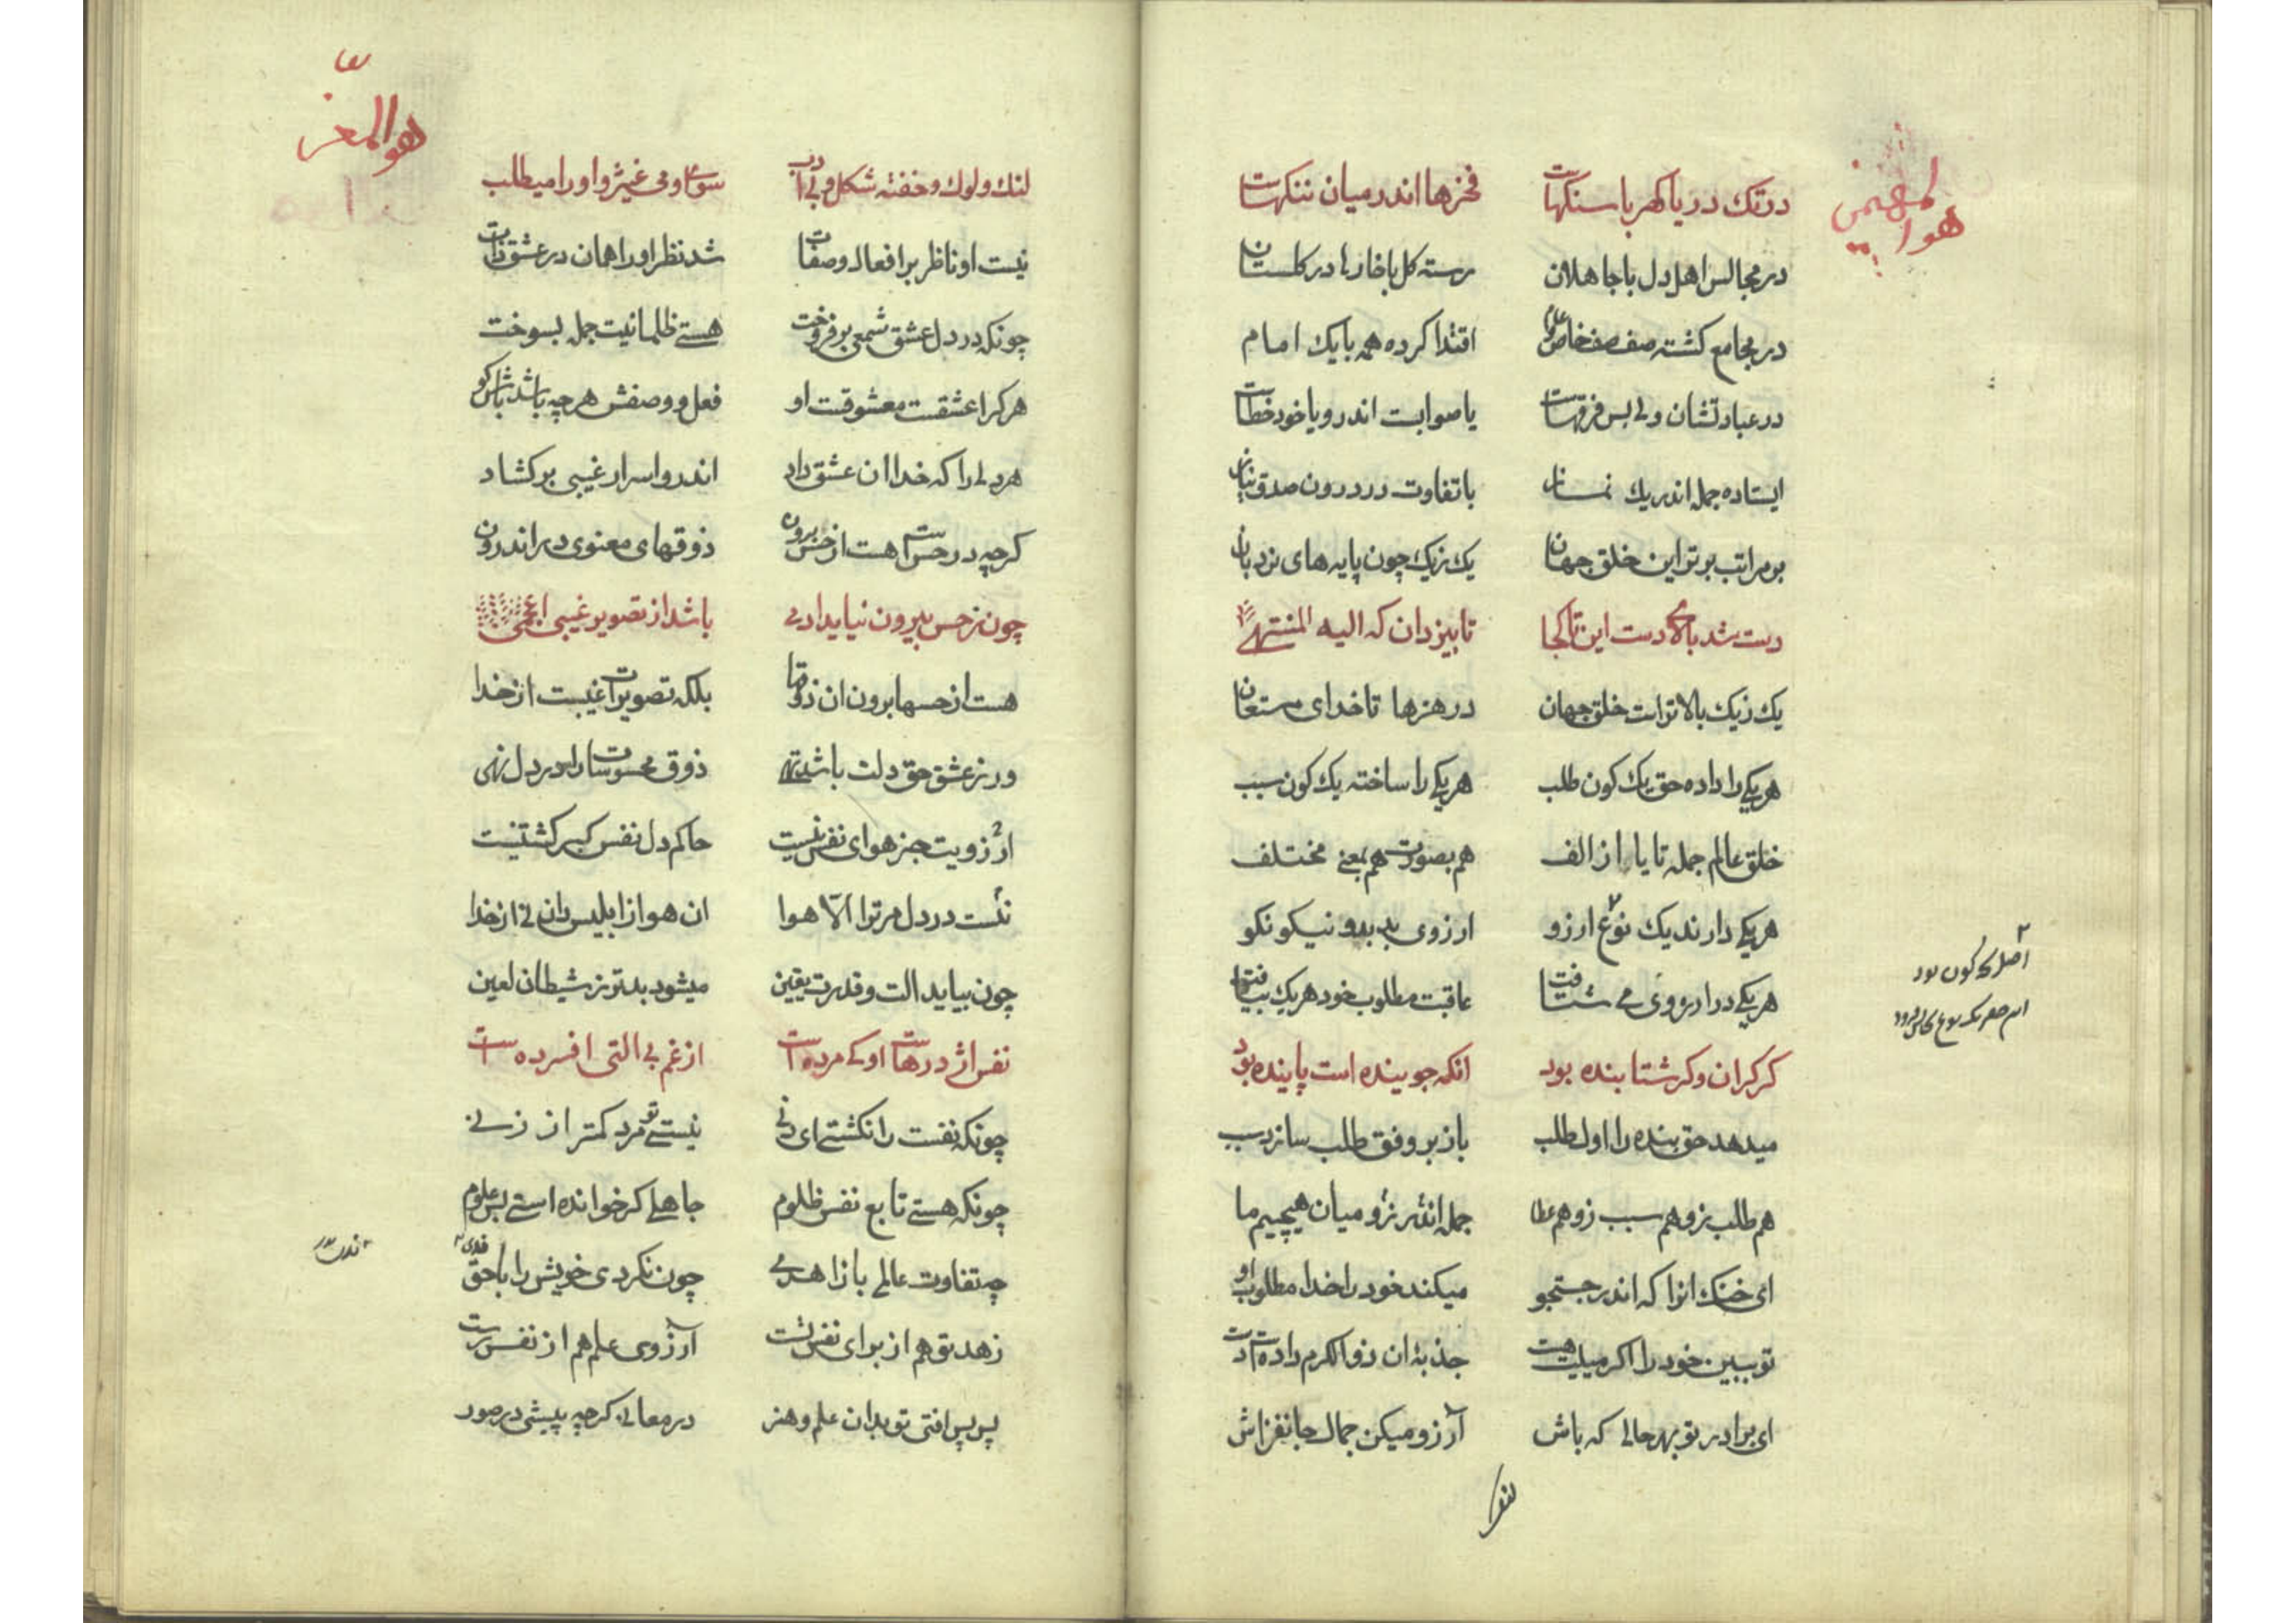 هو المهیمن
در تک دریا گهر با سنگهاست فخرها اندر میان ننگهاست
در مجالس اهل دل با جاهلان رسته کل با خارها در کلستان
در مجامع کشته صف صف خاص و عام اقتدا کرده همه با یک امام
در عبادتشان ولی بس فرقهاست یا صوابست اندرو یا خود خطاست
ایستاده جمله اندر یک نماز با تفاوت در درون صدق نیاز
بر مراتب برتر این خلق جهان یک ز یک چون پایه های نردبان
دست شد بالای دست این تا کجا تا بیزدان که الیه المنتهی
یک ز یک بالاتر است خلق جهان در هنرها تا خدای مستعان
هر یکی را داده حق یک کون طلب هر یکی را ساخته یک کون سبب
خلق عالم جمله تا یا از الف هم بصورت هم بمعنی مختلف
هر یکی دارند یک نوع ارزو ارزوی بد بدو نیکو نکو
هر یکی در ارزوی می شتافت عاقبت مطلوب خود هر یک بیافت
کر کران و کر شتابنده بود انکه جوینده است پاینده بود
میدهد حق بنده را اول طلب باز بر وفق طلب سازد سبب
هم طلب زو هم سبب زو هم عطا جمله اندر زو میان هیچیم ما
ای خنک انرا که اندر جستجو میکند خود را خدا مطلوب او
تو ببین خود را اکر میلیت هست جذبهٔ ان ذو الکرم داده است
ای برادر تو بهر حالی که باش آرزو میکن جمال جانفزاش
هو المعز
لنک و لوک و خفته شکل و بی ادب سوی او می غیژ و او را میطلب
نیست او ناظر بر افعال و صفات شد نظر او را همان در عشق ذات
چونکه در دل عشق شمعی بر فروخت هستی ظلمانیت جمله بسوخت
هر کرا عشقست معشوقست او فعل و وصفش هر چه باشد باش کو
هر دلی را که خدا ان عشق داد اندرو اسرار غیبی بر کشاد
کر چه در حس است هست از حس برون ذوقهای معنوی در اندرون
چون ز حس بیرون نیاید ادمی باشد از تصویر غیبی اعجمی
هست از حسها برون ان ذوقها بلکه تصویرات غیبست از خدا
ور ز عشق حق دلت باشد تهی ذوق محسوسات را در دل نهی
آرزویت جز هوای نفس نیست حاکم دل نفس کبر کشتنیست
نیست در دل مر ترا الّا هوا ان هوا از ابلیس دان نی از خدا
چون بیابد الت و قدرت یقین میشود بدتر ز شیطان لعین
نفس اژدرهاست او کی مرده است از غم بی التی افسرده است
چونکه نفست را نکشتی ای دنی نیستی تو مرد کمتر از زنی
چونکه هستی تابع نفس ظلوم جاهلی کر خوانده استی بس علوم
چه تفاوت عالمی با زاهدی چون نکردی خویش را با حق فدی
زهد تو هم از برای نفس تست آرزوی علم هم از نفس رست
پس پس افتی تو بدان علم و هنر در معانی کر چه پیشی در صور